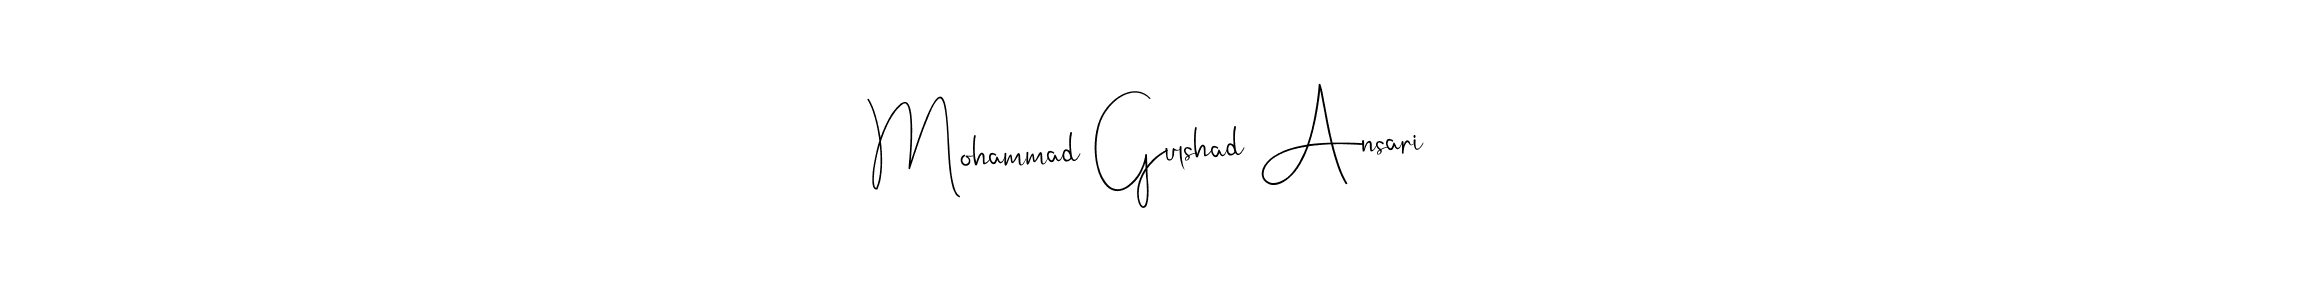 Mohammad Gulshad Ansari